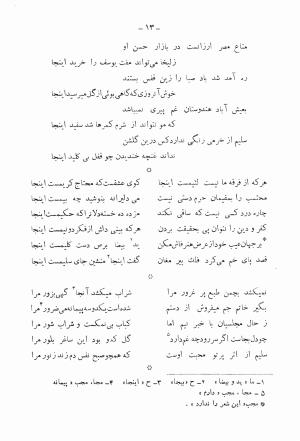 - ۱۳ -
متاع مصر ارزانست در بازار حسن او
زلیخا می‌تواند مفت یوسف را خرید اینجا
ره آمد شد باد صبا را زین قفس بستند
خوش آنروزی که گاهی بوئی از گل میرسید اینجا
بعیش آباد هندوستان غم پیری نمیباشد
که مو نتواند از شرم کمرها شد سفید اینجا
سلیم از خرمی رنگی ندارد کس درین گلشن
نداند غنچه خندیدن چو قفل بی کلید اینجا
هر که از فرقه ما نیست لئیمست اینجا
کوی عشقست که محتاج کریمست اینجا
محتسب را بمقیمان حرم دستی نیست
می دلیرانه بنوشید چه بیمست اینجا
چاره درد کسی نیست که ساقی نکند
مژده ده خسته‌دلانرا که حکیمست اینجا
کفر و دین را نتوان پی بحقیقت بردن
هر که بینی داش از فکر دو نیمست اینجا
* بر جهان عیب خود از عرض هنر فاش مکن
ید بیضا برص دست کلیمست اینجا
قصد پای خم می‌کرد فلک پیر مغان
گفت اینجا منشین جای سلیمست اینجا
نمیکشد بچمن طبع پر غرور مرا
شراب میکشد آنجا گهی بزور مرا
بگیر خاتم جم میفروش از دستم
شده‌ست یک دو سه پیمانه می ضرور مرا
ز حال مجلسیان با خبر نیم اما
کباب بی‌نمکست و شراب شور مرا
چو دل بجاست اگر سر رود چه غم دارم
گل کدو بود این ساغر بلور مرا
سلیم از اثر پرتو محبت اوست
که همچو صبح نفس دم زند ز نور مرا
۱ـ ما: ید و بیضا ۲ـ ح: بیجا ۳ـ ح: اینجا ۴ـ مجا، مجب: پیمانه
۵ـ مجا، مجب: دارم
* مجب: این شعر را ندارد.